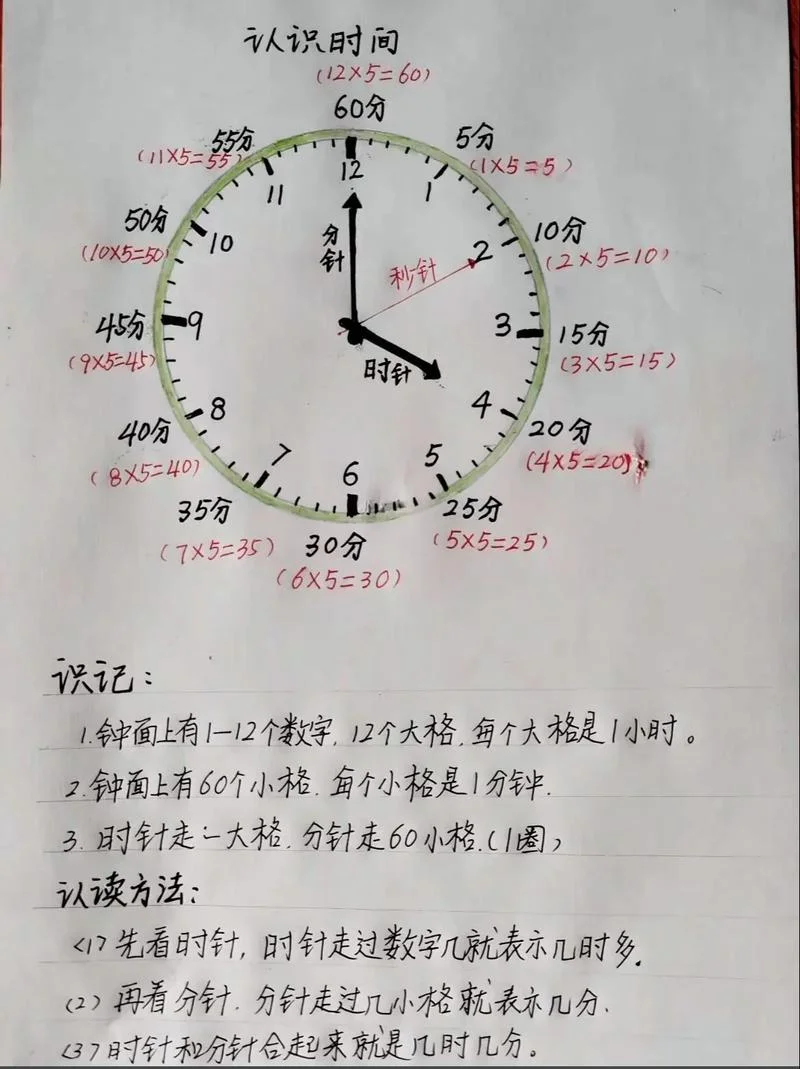 认识时间
(12×5=60)
60分
55分
(11×5=55)
5分
(1×5=5)
12
11
1
50分
(10×5=50)
10
分针
秒针
2
10分
(2×5=10)
45分
(9×5=45)
9
3
15分
(3×5=15)
时针
40分
(8×5=40)
8
4
20分
(4×5=20)
7
6
5
35分
(7×5=35)
30分
(6×5=30)
25分
(5×5=25)
识记：
1.钟面上有1—12个数字，12个大格，每个大格是1小时。
2.钟面上有60个小格.每个小格是1分钟.
3.时针走一大格.分针走60小格.(1圈)
认读方法：
<1>先看时针，时针走过数字几就表示几时多.
(2)再看分针.分针走过几小格就表示几分.
(3)时针和分针合起来就是几时几分。